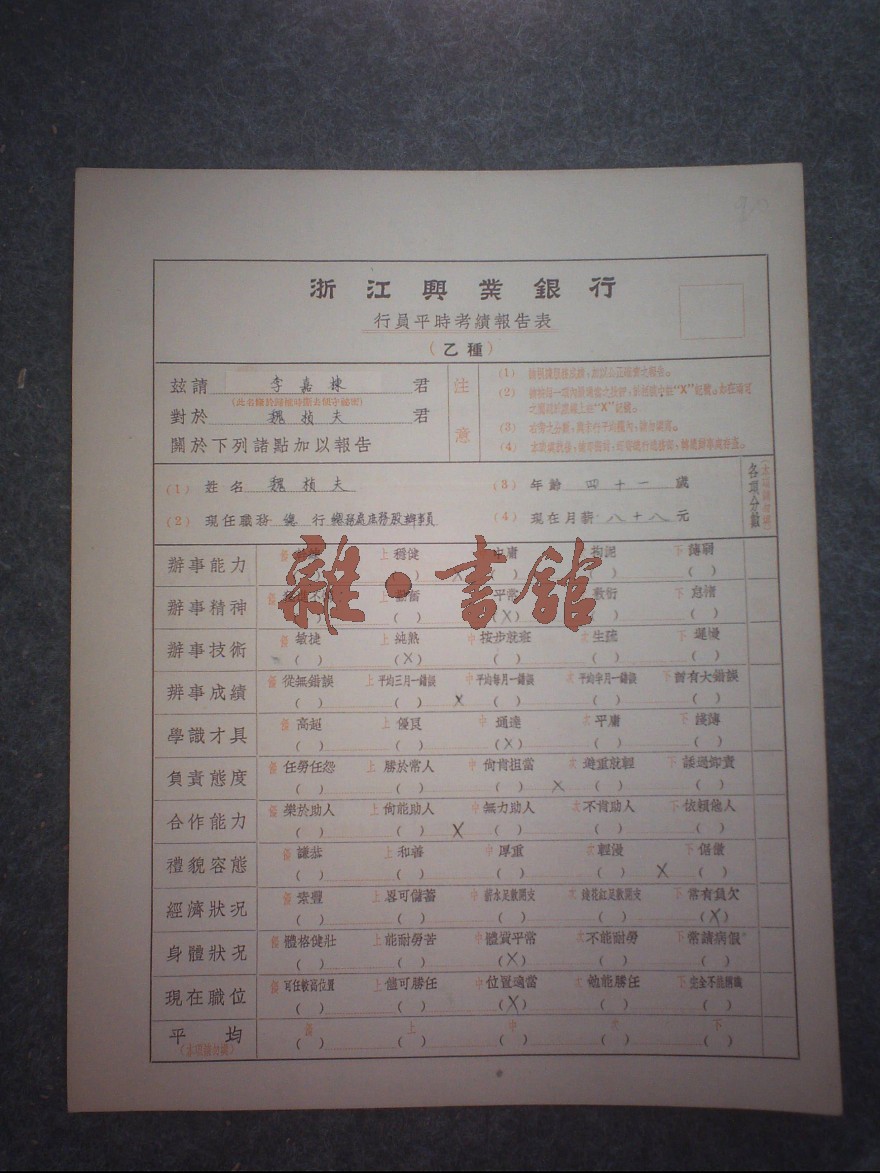 90
浙江興業銀行
行員平時考績報告表
(乙種)
玆請 李嘉棟 君
(此名條於歸檔時撕去保守祕密)
對於 魏楨夫 君
關於下列諸點加以報告
注意
(1)
(2)
(3)
(4)
(1) 姓名 魏楨夫
(3) 年齡 四十一 歲
(2) 現任職務 總行總務處庶務股辦事員
(4) 現在月薪 八十八 元
各項分數
(本項請勿填)
辦事能力 上 穩健 中庸 拘泥 下 薄弱
( ) ( ) X ( ) ( ) ( )
辦事精神 平常 敷衍 下 怠惰
( ) ( ) (X) ( ) ( )
辦事技術 優 敏捷 上 純熟 中 按步就班 次 生疏 下 遲慢
( ) (X) ( ) ( ) ( )
辦事成績 優 從無錯誤 上 平均三月一錯誤 中 平均每月一錯誤 次 平均半月一錯誤 下 時有大錯誤
( ) ( ) X ( ) ( ) ( )
學識才具 優 高超 上 優良 中 通達 次 平庸 下 淺薄
( ) ( ) (X) ( ) ( )
負責態度 優 任勞任怨 上 勝於常人 中 尙肯担當 次 避重就輕 下 諉過卸責
( ) ( ) ( ) X ( ) ( )
合作能力 優 樂於助人 上 尙能助人 中 無力助人 次 不肯助人 下 依賴他人
( ) ( ) X ( ) ( ) ( )
禮貌容態 優 謙恭 上 和善 中 厚重 次 輕漫 下 倨傲
( ) ( ) ( ) ( ) X ( )
經濟狀况 優 素豐 上 畧可儲蓄 中 薪水足敷開支 次 連花紅足敷開支 下 常有負欠
( ) ( ) ( ) ( ) (X)
身體狀况 優 體格健壯 上 能耐勞苦 中 體質平常 次 不能耐勞 下 常請病假
( ) ( ) (X) ( ) ( )
現在職位 優 可任較高位置 上 儘可勝任 中 位置適當 次 勉能勝任 下
( ) ( ) (X) ( ) ( )
平均 優 上 中 次 下
(本項請勿填) ( ) ( ) ( ) ( ) ( )
雜·書館